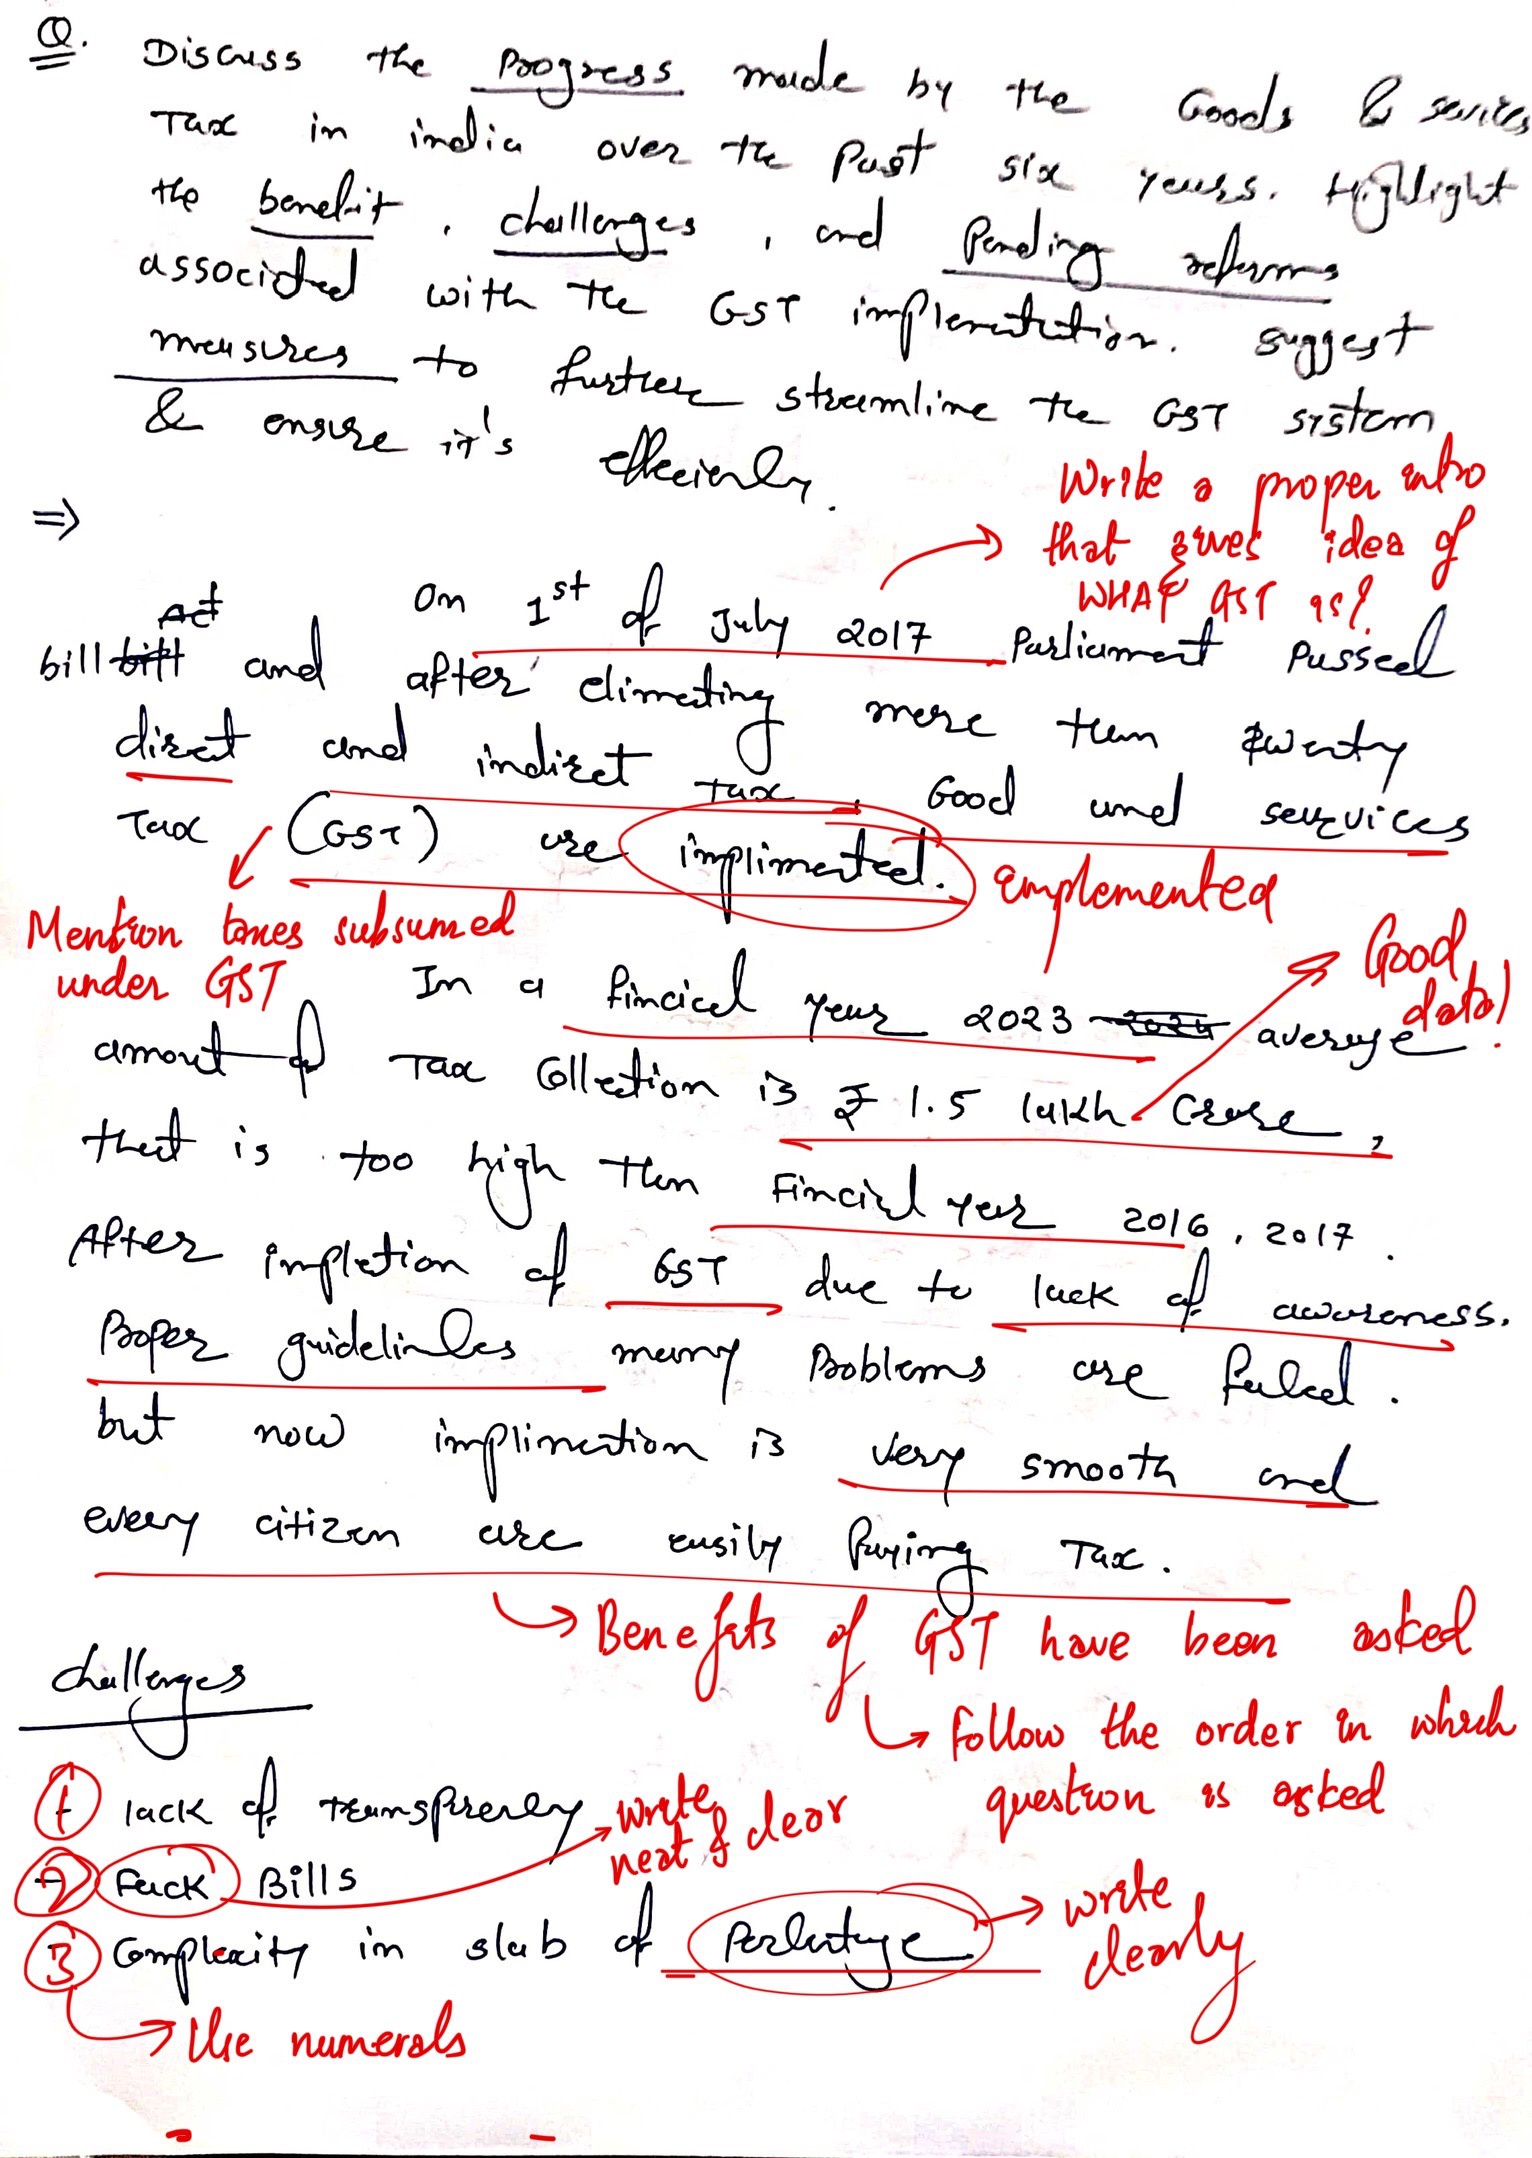 Q. Discuss the progress made by the Goods & services
Tax in india over the Past six years. Highlight
the benefit, challenges, and Pending reforms
associated with the GST implementation. suggest
measures to further streamline the GST system
& ensure it's
Write a proper intro
that gives idea of
WHAT GST is?
On 1st of July 2017 Parliament Passed
Act
bill bill and after elimeting more then twenty
direct and indirect tax, Good and servvices
Tax (GST) are implimented.
emplemented
Mention taxes subsumed
under GST
Good
data!
In a fincical year 2023 2024 average
amout of Tax Collection is ₹ 1.5 lakh Crore,
that is too high then Fincial year 2016, 2017.
After impletion of GST due to lack of awareness.
Proper guidelinles many Problems are faked.
but now implimection is very smooth and
every citizen are easily Paying Tax.
Benefits of GST have been asked
Follow the order in which
question is asked
challenges
1 lack of
write
neat & clear
2 Fack Bills
3 Complexity in slab of
write
clearly
Use numerals